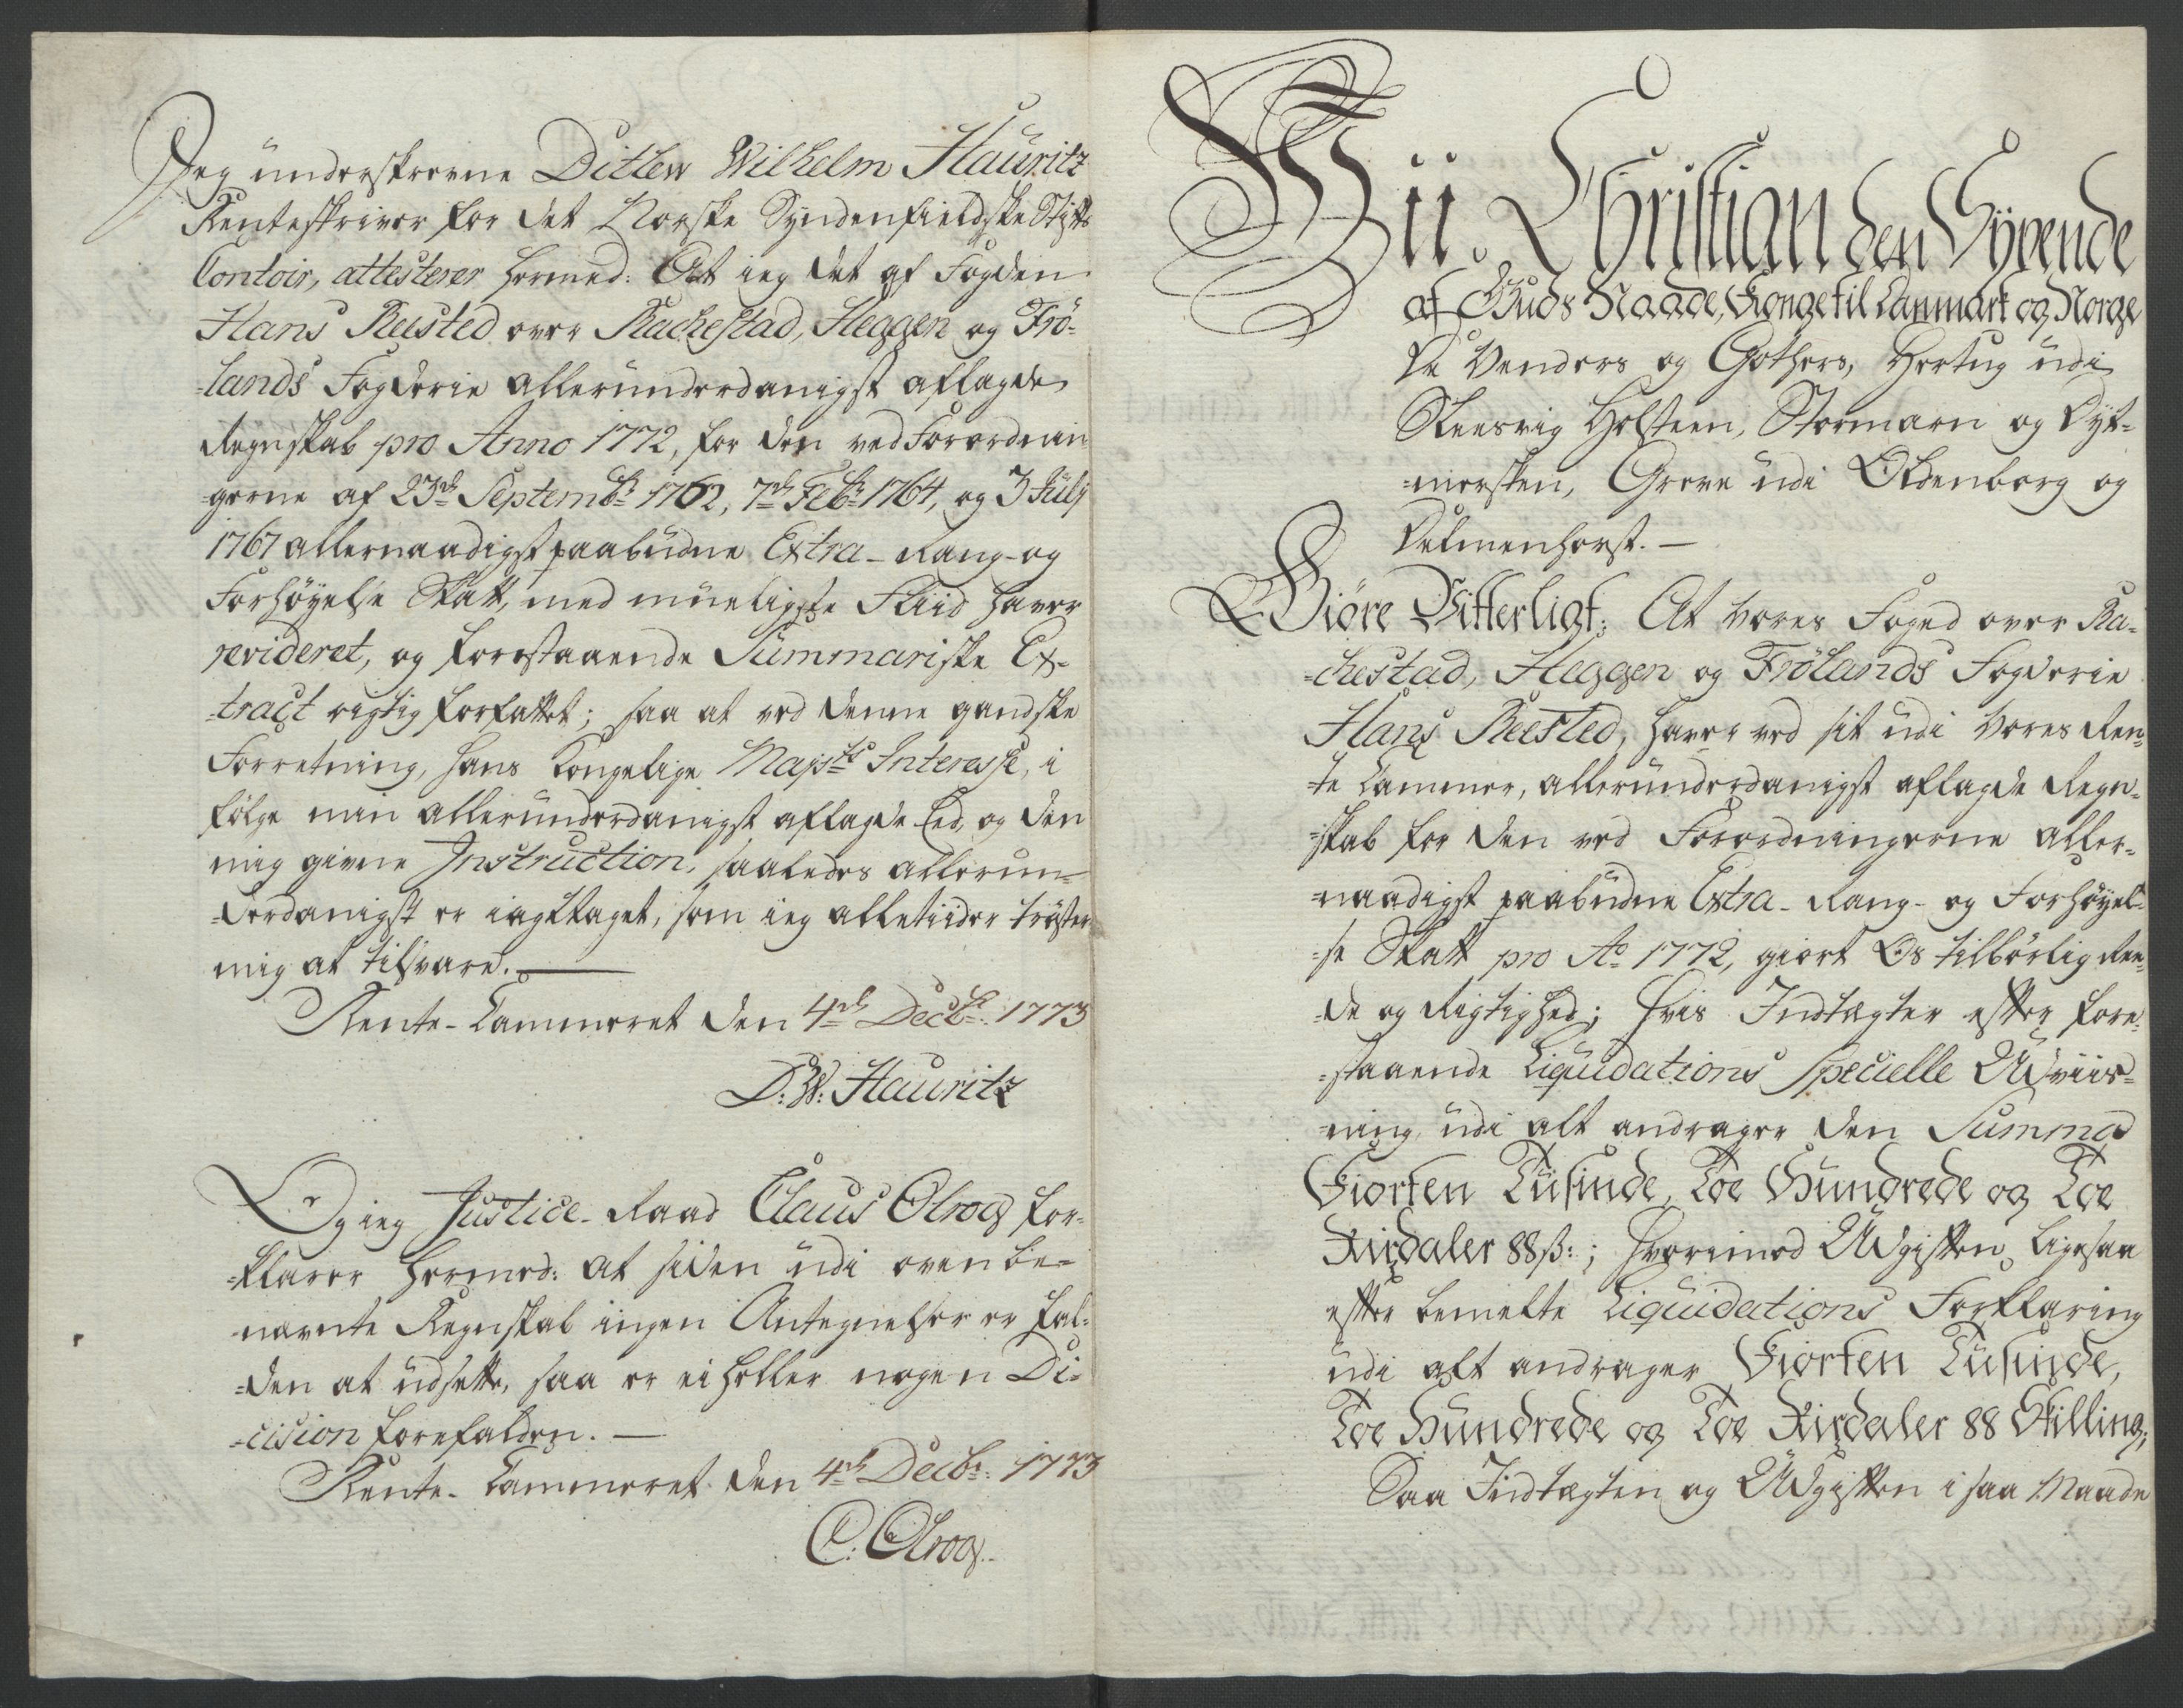 Jeg underskrevne Ditlew Wilhelm Hauritz
Renteskriver for det Norske Syndenfieldske Stifts
Contoir, attesterer hermed: At ieg det af Fogden
Hans Reusted over Rachestad, Heggen og Frö-
-lands Fogderie allerunderdanigst aflagde
Regnskab pro Anno 1772, for den ved Forordnin
gerne af 23de Septembr 1762, 7de Febr 1764, og 3 Julj
1767 allernaadigst paabudne Extra- Rang- og
Forhöyelse Skatt, med mueligste Fliid haver
revideret, og forestaaende Summariske Ex-
-tract rigtig forfattet; saa at ved denne gandske
Forretning, Hans Kongelige Majsts Interesse, i
fölge min allerunderdanigst aflagde Eed, og den
mig givne Instruction, saaledes allerun-
-derdanigst er iagttaget, som ieg alletiider tröster
mig at tilsvare.
Rente-Cammeret den 4de Decbr: 1773
D: W: Hauritz
Og ieg Justice-Raad Claus Olrog for-
-klarer hermed: at siden udi oven be-
-nævnte Regnskab ingen Antegnelser er fal-
-den at udsette, saa er ei heller nogen De-
-cision forefalden.
Rente-Cammeret den 4de Decbr: 1773
C: Olrog.
Wii Christian den Syvende
af Guds Naade, Konge til Danmark og Norge
De Venders og Gothers, Hertug udi
Sleesvig Holsteen, Stormarn og Dyt-
-mersken, Greve udi Oldenborg og
Delmenhorst.
Giöre Vitterligt: At Vores Foged over Ra-
-chestad, Heggen og Frölands Fogderie
Hans Reusted, haver ved sit udi Vores Ren-
-te Cammer, allerunderdanigst aflagde Regn-
-skab for den ved Forordningerne aller-
-naadigst paabudne Extra- Rang- og Forhöyel-
-se Skatt pro Ao 1772, giort Os tilbörlig Ree-
-de og Rigtighed; Hvis Indtægter efter fore-
-staaende Liquidations Specielle Udviis-
-ning, udi alt andrager den Summa
Fiorten Tusinde, Toe Hundrede og Toe
Rixdaler 88 ß:; hvorimod Udgiften, ligesaa
efter bemelte Liquidations Forklaring
udi alt andrager Fiorten Tusinde,
Toe Hundrede og Toe Rixdaler 88 Skilling;
Saa Indtægten og Udgiften i saa Maade